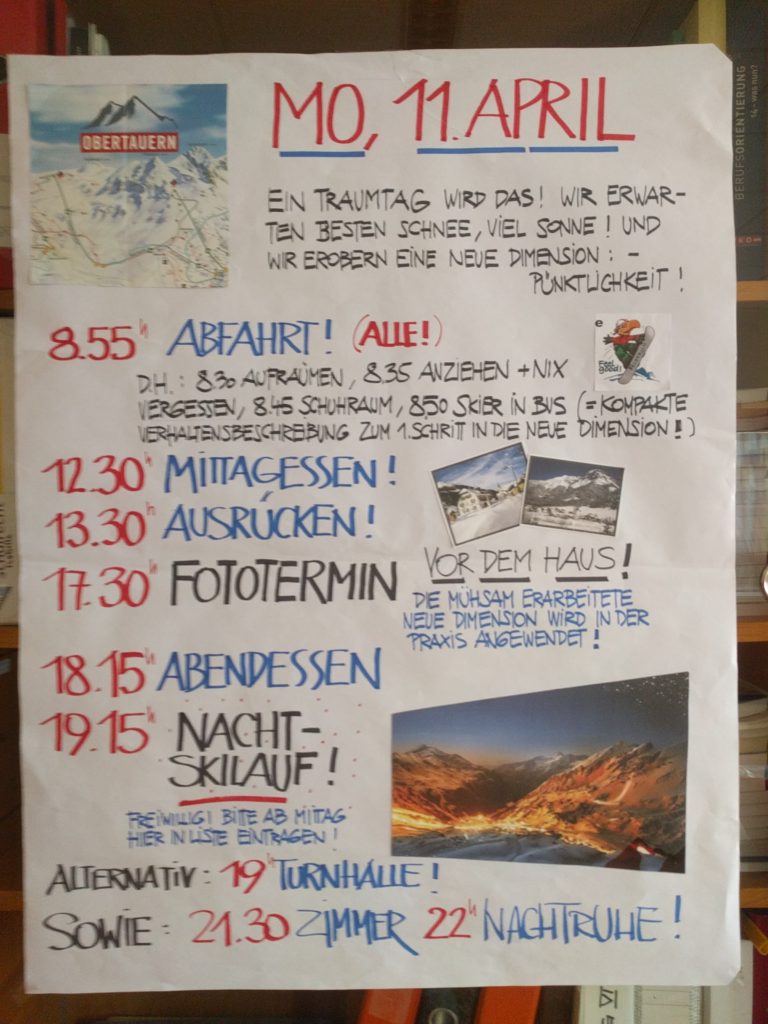 OBERTAUERN
MO, 11. APRIL
EIN TRAUMTAG WIRD DAS! WIR ERWAR-
TEN BESTEN SCHNEE, VIEL SONNE! UND
WIR EROBERN EINE NEUE DIMENSION: -
PÜNKTLICHKEIT!
8.55h ABFAHRT! (ALLE!)
e
Feel good!
D.H.: 8.30 AUFRÄUMEN, 8.35 ANZIEHEN + NIX
VERGESSEN, 8.45 SCHUHRAUM, 8.50 SKIER IN BUS (=KOMPAKTE
VERHALTENSBESCHREIBUNG ZUM 1.SCHRITT IN DIE NEUE DIMENSION!)
12.30h MITTAGESSEN!
13.30h AUSRÜCKEN!
17.30h FOTOTERMIN VOR DEM HAUS!
DIE MÜHSAM ERARBEITETE
NEUE DIMENSION WIRD IN DER
PRAXIS ANGEWENDET!
18.15h ABENDESSEN
19.15h NACHT-
SKILAUF!
FREIWILLIG! BITTE AB MITTAG
HIER IN LISTE EINTRAGEN!
ALTERNATIV: 19h TURNHALLE!
SOWIE: 21.30 ZIMMER 22h NACHTRUHE!
BERUFSORIENTIERUNG
14 - was nun?